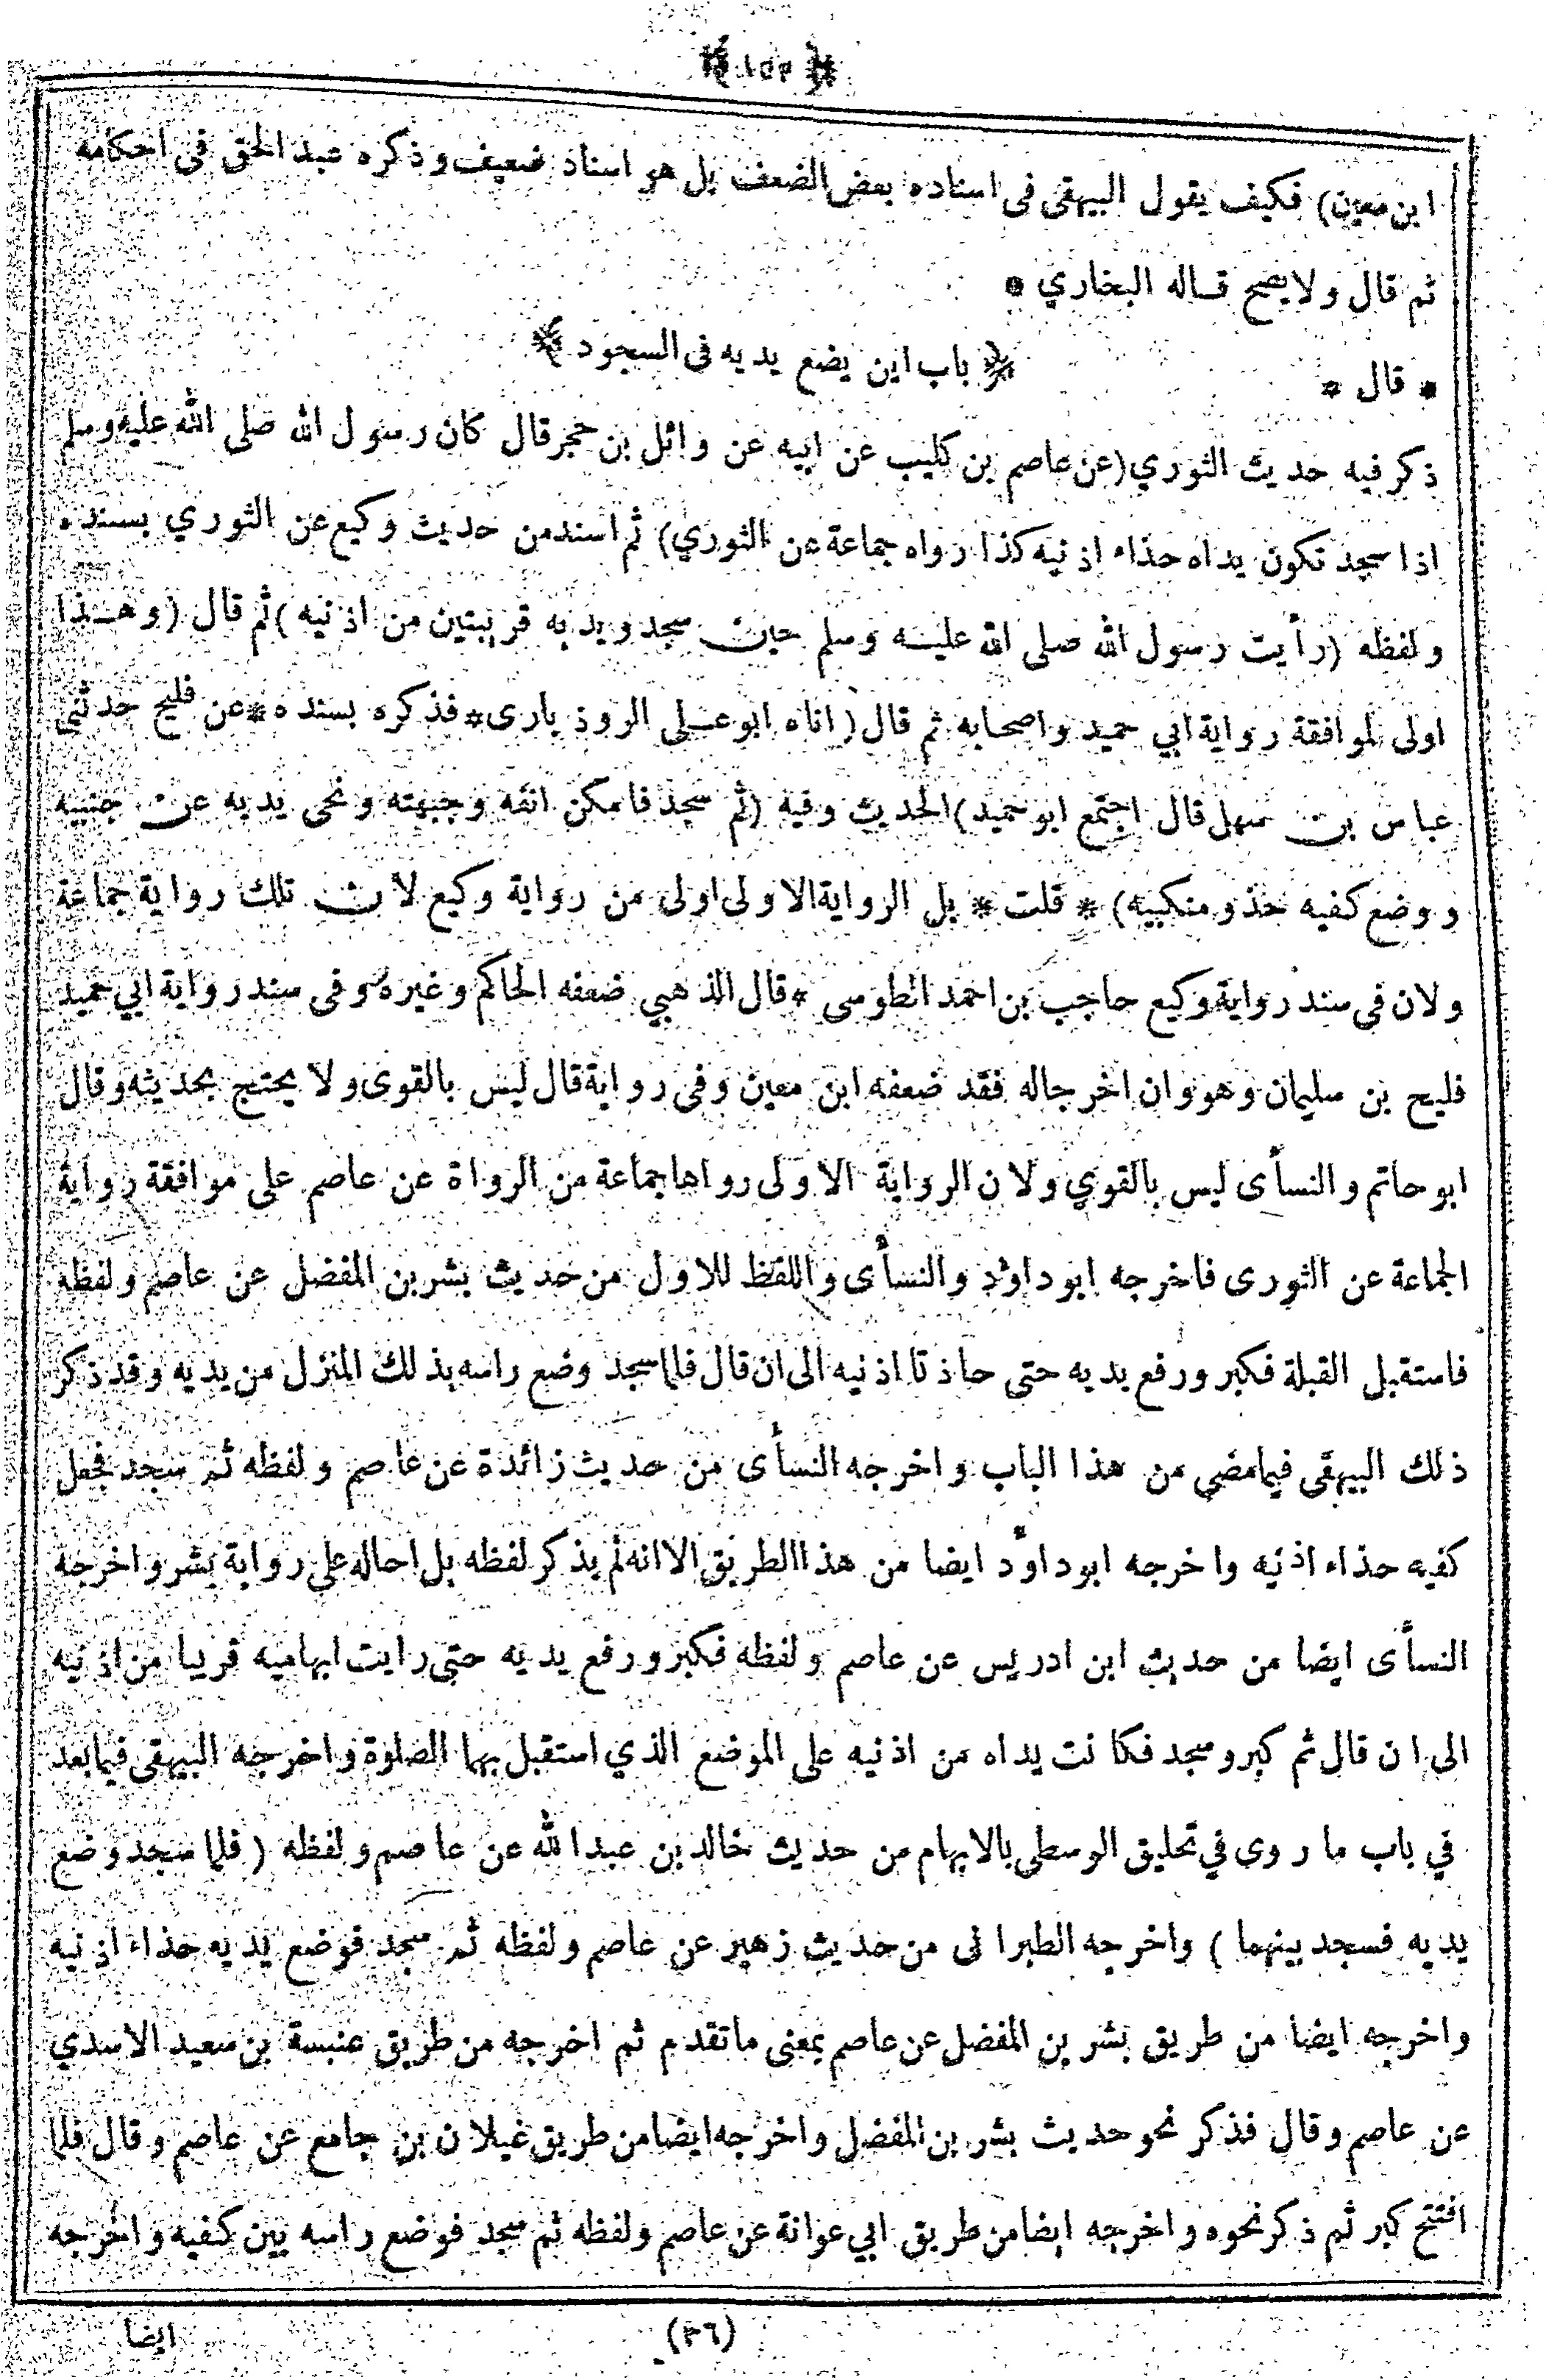 ﴿ ١٥٣ ﴾
ابن معين) فكيف يقول البيهقى فى اسناده بعض الضعف بل هو اسناد ضعيف وذكره عبد الحق فى احكامه
ثم قال ولا يصح قاله البخاري *
* قال * ﴿ باب اين يضع يديه فى السجود ﴾
ذكر فيه حديث الثوري (عن عاصم بن كليب عن ابيه عن وائل بن حجر قال كان رسول الله صلى الله عليه وسلم
اذا سجد تكون يداه حذاء اذنيه كذا رواه جماعة عن الثوري) ثم اسند من حديث وكيع عن الثوري بسنده
ولفظه (رأيت رسول الله صلى الله عليه وسلم حين سجد ويديه قريبتين من اذنيه) ثم قال (وهذا
اولى لموافقة رواية ابي حميد واصحابه ثم قال (اناه ابو على الروذبارى* فذكره بسنده* عن فليح حدثنى
عباس بن سهل قال اجتمع ابو حميد) الحديث وفيه (ثم سجد فامكن انفه وجبهته ونحى يديه عن جنبيه
ووضع كفيه حذو منكبيه) * قلت * بل الرواية الاولى اولى من رواية وكيع لان تلك رواية جماعة
ولان فى سند رواية وكيع حاجب بن احمد الطوسى * قال الذهبي ضعفه الحاكم وغيره وفى سند رواية ابي حميد
فليح بن سليمان وهو وان اخرجاله فقد ضعفه ابن معين وفى رواية قال ليس بالقوى ولا يحتج بحديثه وقال
ابو حاتم والنسأى ليس بالقوي ولان الرواية الاولى رواها جماعة من الرواة عن عاصم على موافقة رواية
الجماعة عن الثورى فاخرجه ابو داؤد والنسأى واللفظ للاول من حديث بشر بن المفضل عن عاصم ولفظه
فاستقبل القبلة فكبر ورفع يديه حتى حاذتا اذنيه الى ان قال فلما سجد وضع راسه بذلك المنزل من يديه وقد ذكر
ذلك البيهقى فيما مضى من هذا الباب واخرجه النسأى من حديث زائدة عن عاصم ولفظه ثم سجد فجعل
كفيه حذاء اذنيه واخرجه ابو داؤد ايضا من هذا الطريق الا انه لم يذكر لفظه بل احاله على رواية بشر واخرجه
النسأى ايضا من حديث ابن ادريس عن عاصم ولفظه فكبر ورفع يديه حتى رايت ابهاميه قريبا من اذنيه
الى ان قال ثم كبر وسجد فكانت يداه من اذنيه على الموضع الذي استقبل بهما الصلوة واخرجه البيهقى فيما بعد
في باب ما روى في تحليق الوسطى بالابهام من حديث خالد بن عبد الله عن عاصم ولفظه (فلما سجد وضع
يديه فسجد بينهما) واخرجه الطبرانى من حديث زهير عن عاصم ولفظه ثم سجد فوضع يديه حذاء اذنيه
واخرجه ايضا من طريق بشر بن المفضل عن عاصم بمعنى ما تقدم ثم اخرجه من طريق عنبسة بن سعيد الاسدي
عن عاصم وقال فذكر نحو حديث بشر بن المفضل واخرجه ايضا من طريق غيلان بن جامع عن عاصم وقال فلما
افتتح كبر ثم ذكر نحوه واخرجه ايضا من طريق ابي عوانة عن عاصم ولفظه ثم سجد فوضع راسه بين كفيه واخرجه
ايضا